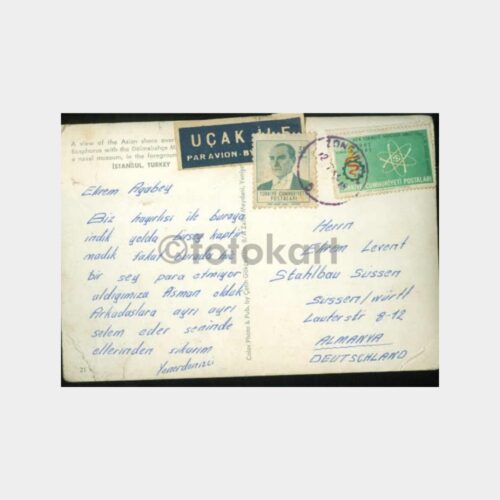 A view of the Asian shore over
Bosphorus with the Dolmabahçe M
a naval museum, in the foreground
İSTANBUL, TURKEY
UÇAK İLE
PAR AVION-BY
TÜRKİYE CUMHURİYETİ
POSTALARI
TÜRKİYE CUMHURİYETİ POSTALARI
Ekrem Agabey
Biz hayırlısı ile buraya
indik yolda birşey kaptır
madık fakat burada hiç
bir şey para etmiyor
aldığımıza pişman olduk
Arkadaşlara ayrı ayrı
selam eder seninde
ellerinden sıkarım
21
Color Photo & Pub. by
©fotokart
Herrn
Ekrem Levent
Stahlbau Süssen
Süssen/Württ
Lauterstr 8-12
ALMANYA
DEUTSCHLAND